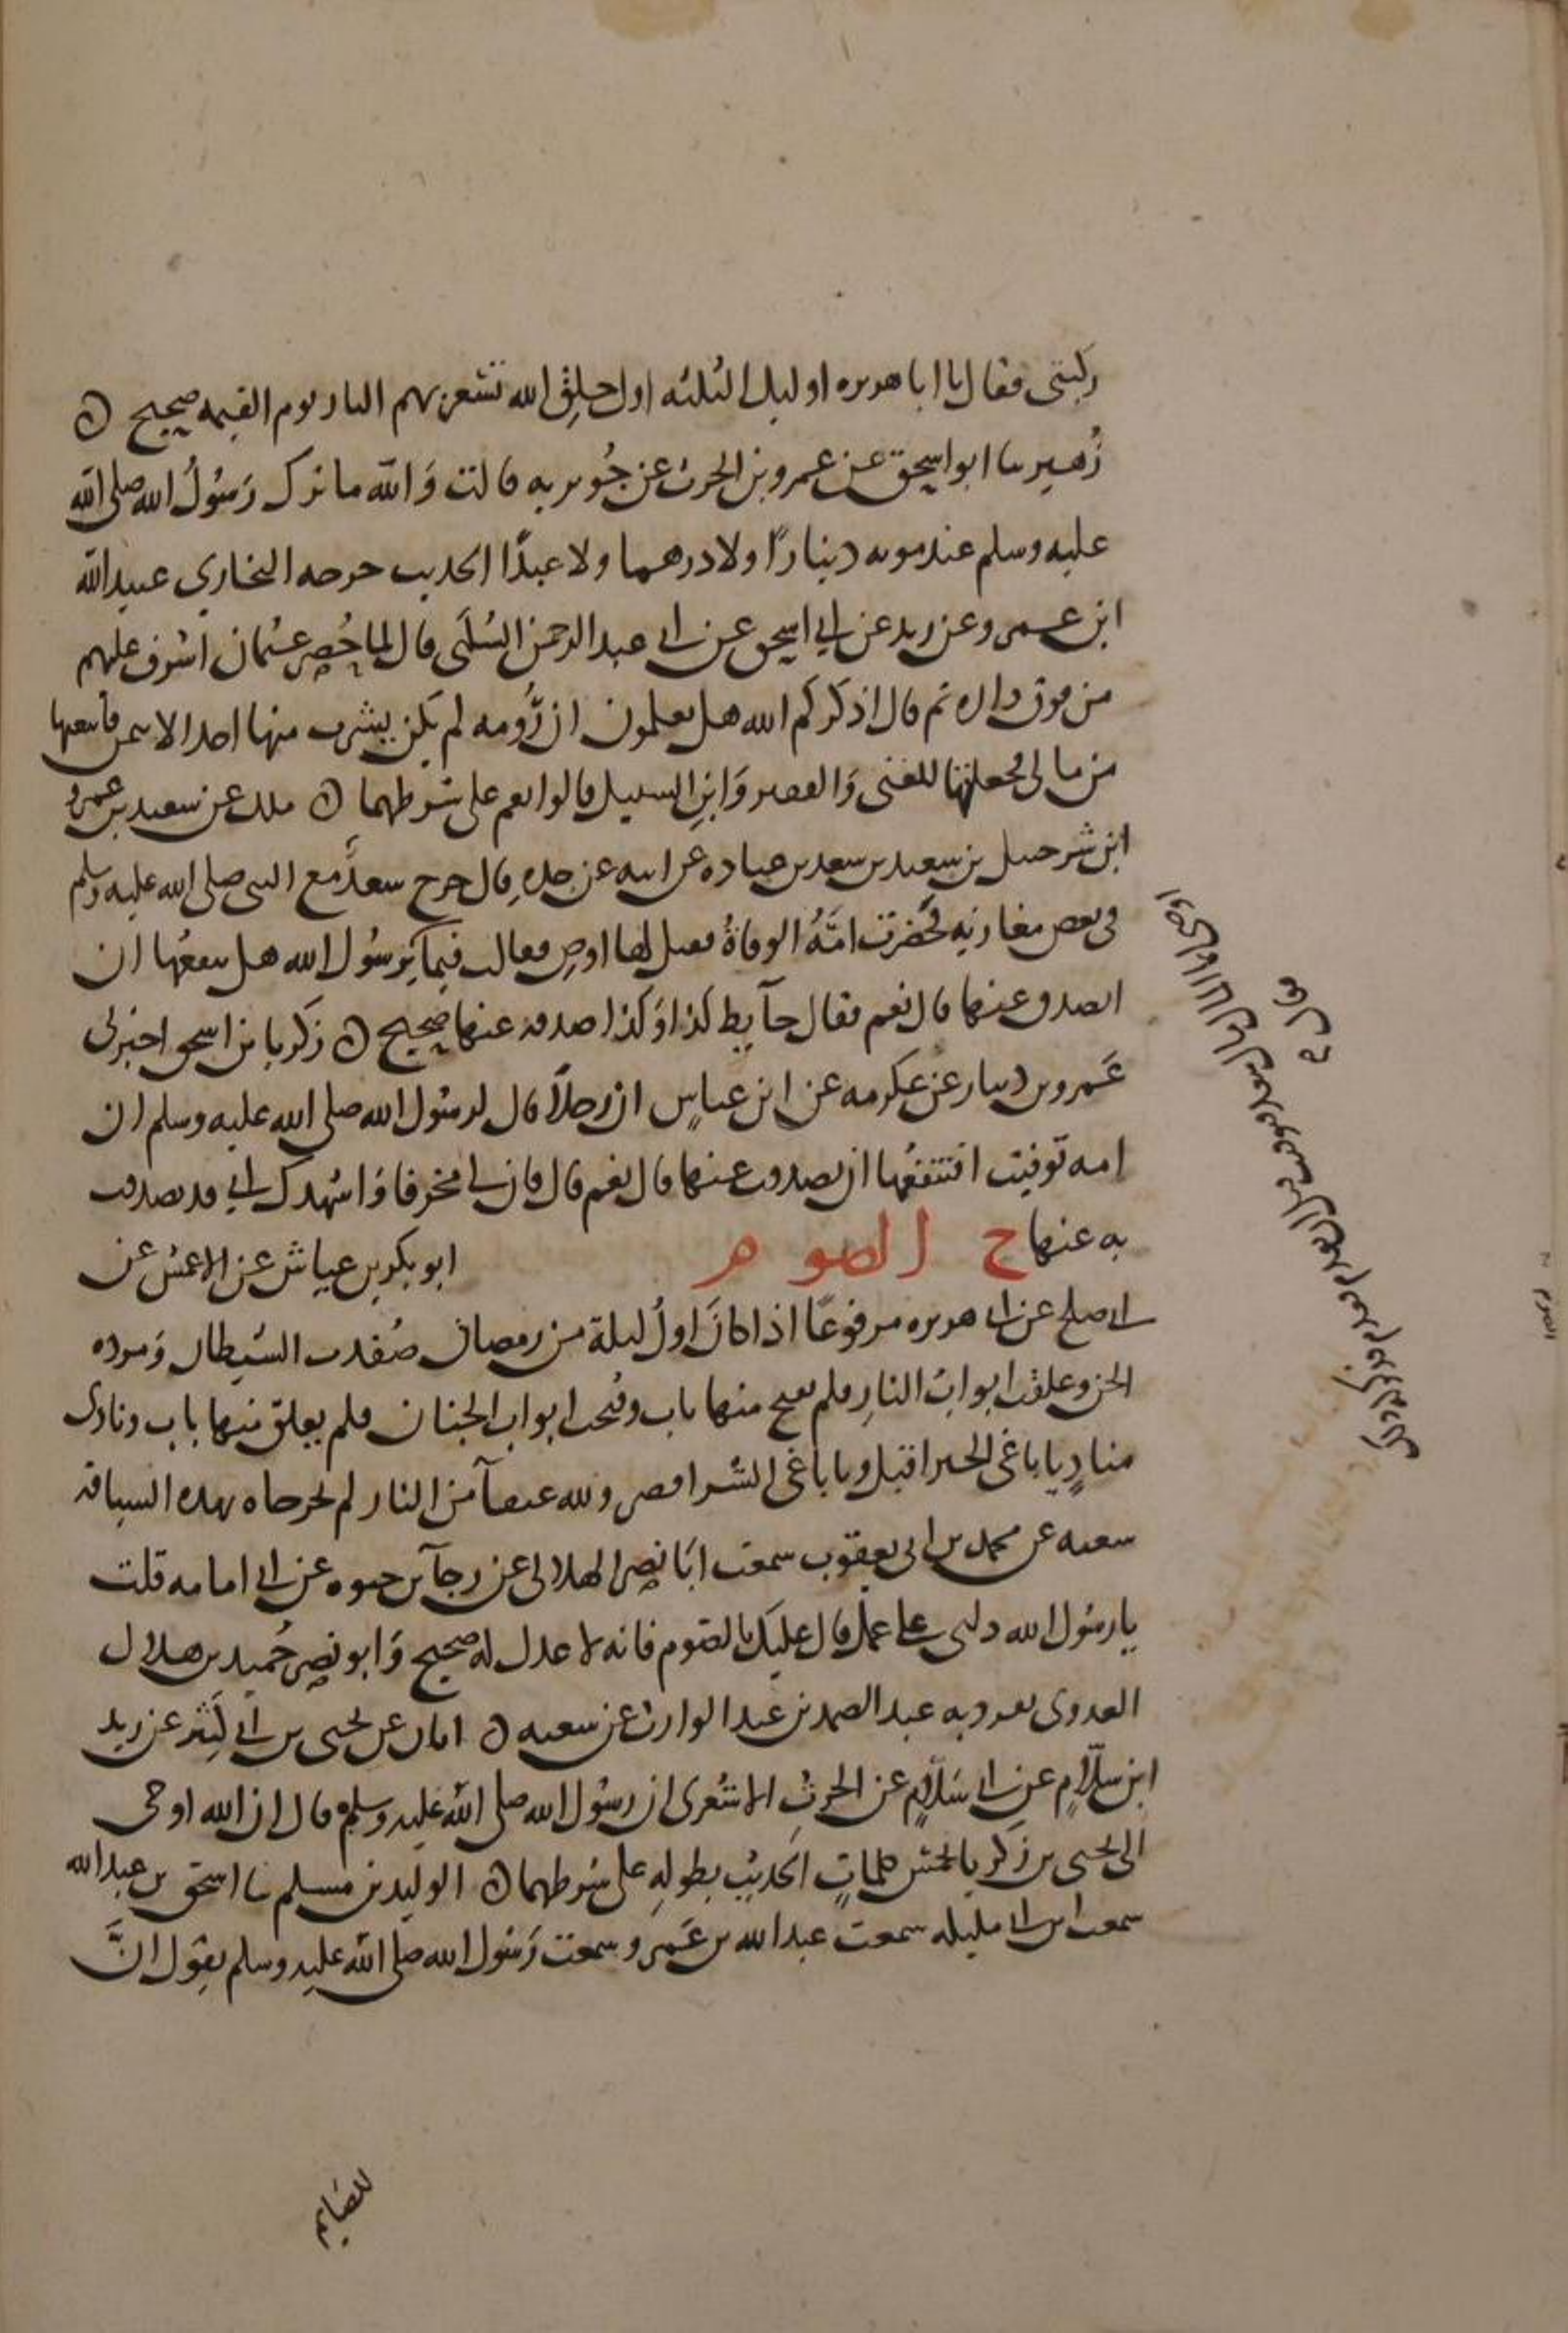 ركبتي فقال يا ابا هريره اوليك الثلثه اول خلق الله تسعر بهم النار يوم القيمه صحيح ن
زهير ثنا ابو اسحق عن عمرو بن الحرث عن جويريه قالت والله ما ترك رسول الله صلى الله
عليه وسلم عند موته دينارا ولا درهما ولا عبدا الحديث خرجه البخاري عبيد الله
ابن عمرو عن زيد عن ابي اسحق عن ابي عبد الرحمن السلمى قال لما حصر عثمان اشرف عليهم
من فوق داره ثم قال اذكركم الله هل تعلمون ان رومه لم يكن يشرب منها احد الا بثمن فابتعتها
من مالى فجعلتها للغنى والفقير وابن السبيل قالوا نعم على شرطهما ن ملك عن سعيد بن عمرو
ابن شرحبيل بن سعيد بن سعد بن عباده عن ابيه عن جده قال خرج سعد مع النبى صلى الله عليه وسلم
فى بعض مغازيه فحضرت امه الوفاة فقيل لها اوصى فقالت فيما يرسول الله هل ينفعها ان
اتصدق عنها قال نعم فقال حايط كذا وكذا صدقه عنها صحيح ن زكريا بن اسحق اخبرنى
عمرو بن دينار عن عكرمه عن ابن عباس ان رجلا قال لرسول الله صلى الله عليه وسلم ان
امه توفيت افتنفعها ان تصدقت عنها قال نعم قال فان لي مخرفا واشهدك اني قد تصدقت
به عنها ح الصوم ابو بكر بن عياش عن الاعمش عن
ابي صلح عن ابي هريره مرفوعا اذا كان اول ليلة من رمضان صفدت الشيطان ومرده
الجن وغلقت ابواب النار فلم يفتح منها باب وفتحت ابواب الجنان فلم يغلق منها باب ونادى
مناد يا باغى الخير اقبل ويا باغى الشر اقصر ولله عتقآ من النار لم يخرجاه بهذه السياقه
شعبه عن محمد بن ابى يعقوب سمعت ابا نصر الهلالى عن رجآ بن حيوه عن ابي امامه قلت
يا رسول الله دلنى على عمل قال عليك بالصوم فانه لا عدل له صحيح وابو نصر حميد بن هلال
العدوى تفرد به عبد الصمد بن عبد الوارث عن شعبه ن ابان عن يحيى بن ابي كثير عن زيد
ابن سلام عن ابي سلام عن الحرث الاشعرى ان رسول الله صلى الله عليه وسلم قال ان الله اوحى
الى يحيى بن زكريا بخمس كلمات الحديث بطوله على شرطهما ن الوليد بن مسلم ثنا اسحق بن عبد الله
سمعت ابن ابي مليكه سمعت عبد الله بن عمرو سمعت رسول الله صلى الله عليه وسلم يقول ان
للصايم